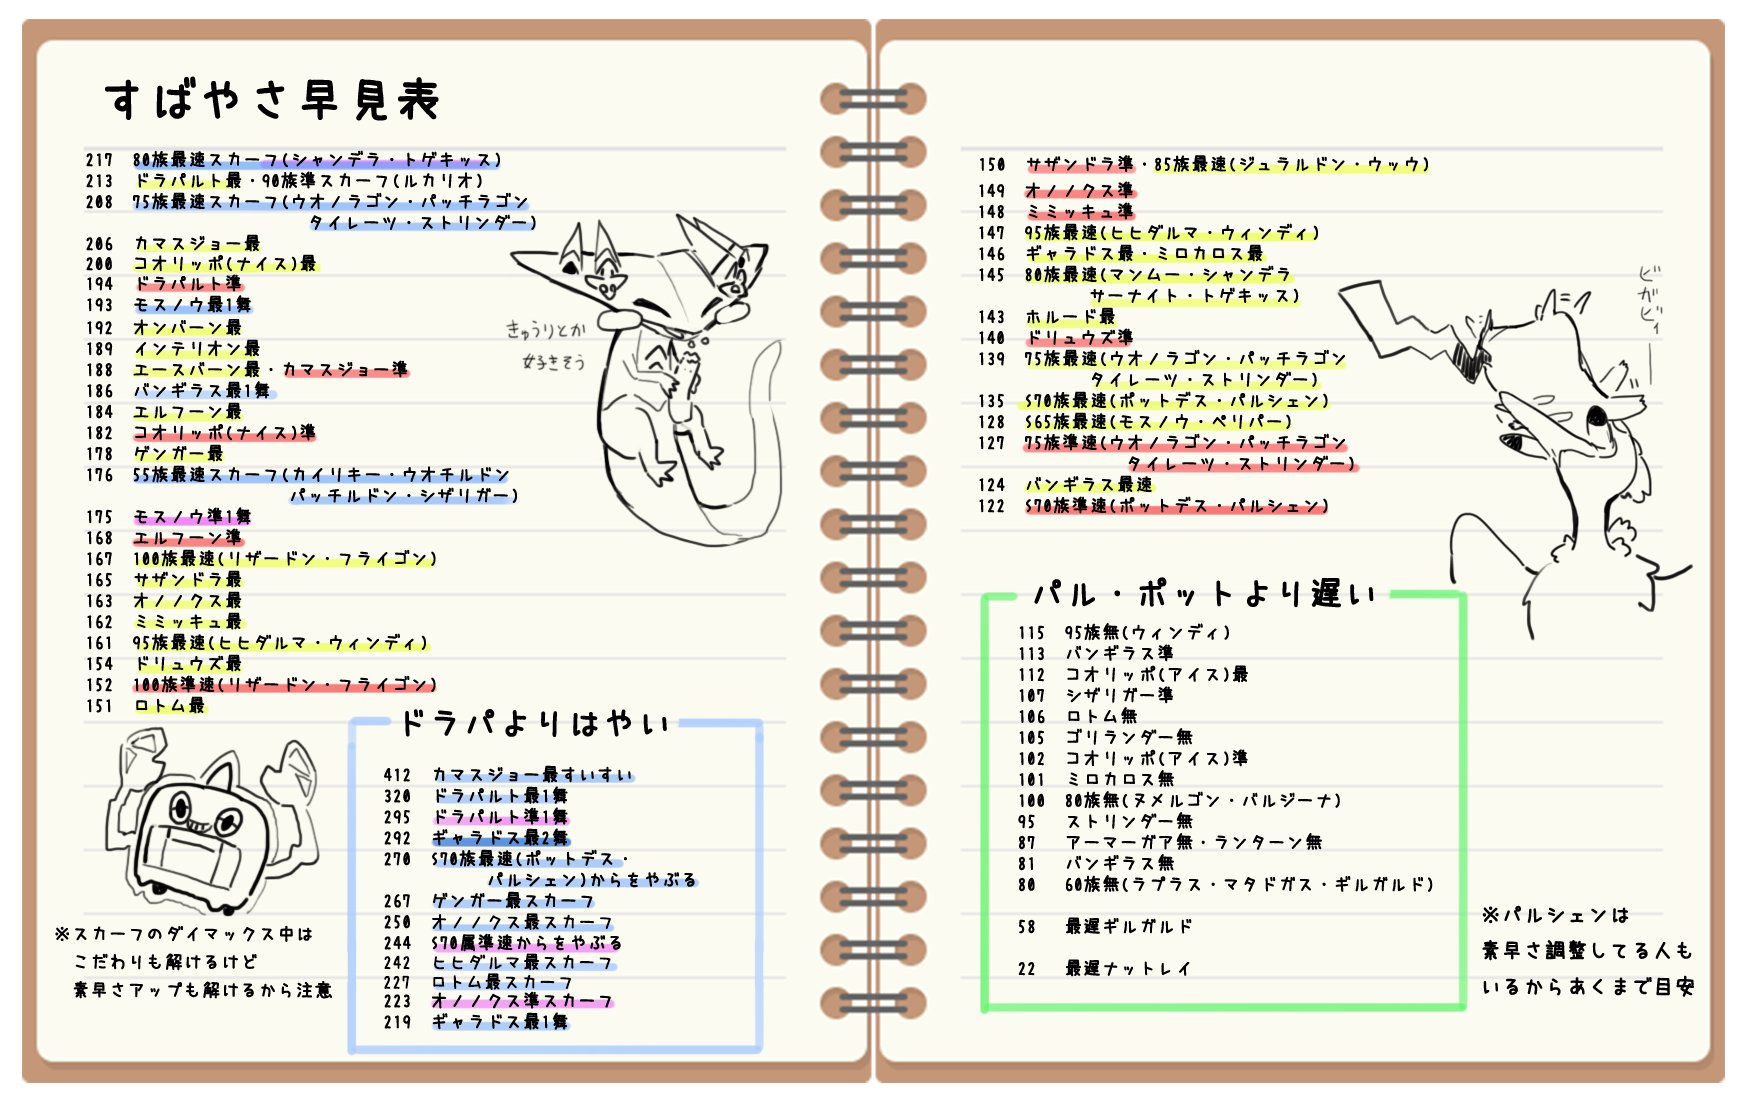 すばやさ早見表
217 80族最速スカーフ(シャンデラ・トゲキッス)
213 ドラパルト最・90族準スカーフ(ルカリオ)
208 75族最速スカーフ(ウオノラゴン・パッチラゴン
タイレーツ・ストリンダー)
206 カマスジョー最
200 コオリッポ(ナイス)最
194 ドラパルト準
193 モスノウ最1舞
192 オンバーン最
189 インテリオン最
188 エースバーン最・カマスジョー準
186 バンギラス最1舞
184 エルフーン最
182 コオリッポ(ナイス)準
178 ゲンガー最
176 55族最速スカーフ(カイリキー・ウオチルドン
パッチルドン・シザリガー)
175 モスノウ準1舞
168 エルフーン準
167 100族最速(リザードン・フライゴン)
165 サザンドラ最
163 オノノクス最
162 ミミッキュ最
161 95族最速(ヒヒダルマ・ウィンディ)
154 ドリュウズ最
152 100族準速(リザードン・フライゴン)
151 ロトム最
きゅうりとか
好きそう
ドラパよりはやい
412 カマスジョー最すいすい
320 ドラパルト最1舞
295 ドラパルト準1舞
292 ギャラドス最2舞
270 S70族最速(ポットデス・
パルシェン)からをやぶる
267 ゲンガー最スカーフ
250 オノノクス最スカーフ
244 S70属準速からをやぶる
242 ヒヒダルマ最スカーフ
227 ロトム最スカーフ
223 オノノクス準スカーフ
219 ギャラドス最1舞
※スカーフのダイマックス中は
こだわりも解けるけど
素早さアップも解けるから注意
150 サザンドラ準・85族最速(ジュラルドン・ウッウ)
149 オノノクス準
148 ミミッキュ準
147 95族最速(ヒヒダルマ・ウィンディ)
146 ギャラドス最・ミロカロス最
145 80族最速(マンムー・シャンデラ
サーナイト・トゲキッス)
143 ホルード最
140 ドリュウズ準
139 75族最速(ウオノラゴン・パッチラゴン
タイレーツ・ストリンダー)
135 S70族最速(ポットデス・パルシェン)
128 S65族最速(モスノウ・ペリパー)
127 75族準速(ウオノラゴン・パッチラゴン
タイレーツ・ストリンダー)
124 バンギラス最速
122 S70族準速(ポットデス・パルシェン)
ビガビィ
パル・ポットより遅い
115 95族無(ウィンディ)
113 バンギラス準
112 コオリッポ(アイス)最
107 シザリガー準
106 ロトム無
105 ゴリランダー無
102 コオリッポ(アイス)準
101 ミロカロス無
100 80族無(ヌメルゴン・バルジーナ)
95 ストリンダー無
87 アーマーガア無・ランターン無
81 バンギラス無
80 60族無(ラプラス・マタドガス・ギルガルド)
58 最遅ギルガルド
22 最遅ナットレイ
※パルシェンは
素早さ調整してる人も
いるからあくまで目安